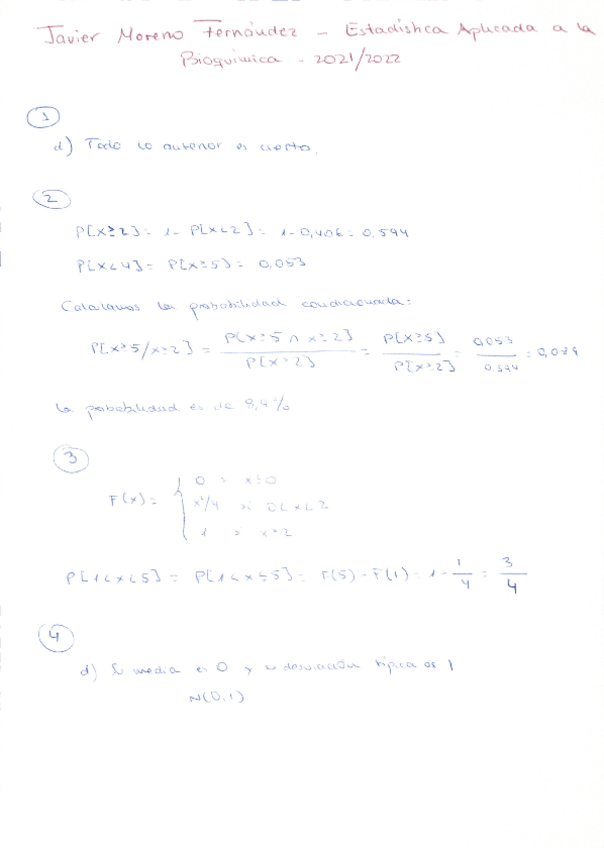 Javier Moreno Fernández - Estadística Aplicada a la
Bioquímica - 2021/2022
1
d) Todo lo anterior es cierto.
2
P[X≥2] = 1 - P[X<2] = 1 - 0,406 = 0,594
P[X<4] = P[X≥5] = 0,053
Calculamos la probabilidad condicionada:
P[X≥5/X≥2] = P[X≥5 ∩ X≥2] / P[X≥2] = P[X≥5] / P[X≥2] = 0,053 / 0,594 = 0,089
La probabilidad es de 8,9%
3
F(x) = { 0 si x≤0
x²/4 si 0<x<2
1 si x≥2
P[1<x<5] = P[1<x≤5] = F(5) - F(1) = 1 - 1/4 = 3/4
4
d) Su media es 0 y su desviación típica es 1
N(0,1)